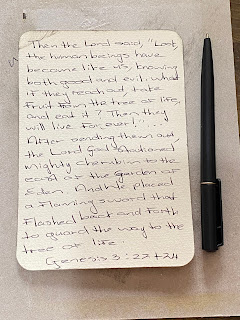 Then the Lord said, "Look,
the human beings have
become like us, knowing
both good and evil. What
if they reach out, take
fruit from the tree of life,
and eat it? Then they
will live forever!"
After sending them out
the Lord God stationed
mighty cherubim to the
east of the Garden of
Eden. And he placed
a flaming sword that
flashed back and forth
to guard the way to the
tree of life.
Genesis 3:22+24